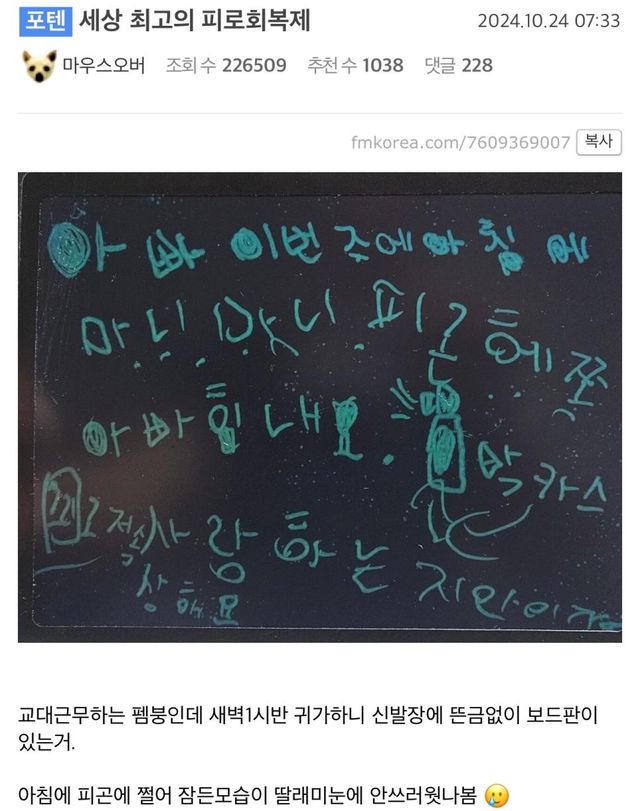 포텐 세상 최고의 피로회복제 2024.10.24 07:33
마우스오버 조회 수 226509 추천 수 1038 댓글 228
fmkorea.com/7609369007 복사
아빠 이번 주에 아침에
마니 마니 피곤 해쪄
아빠 힘내요.
박카스
사랑하는 지안이가
교대근무하는 펨붕인데 새벽1시반 귀가하니 신발장에 뜬금없이 보드판이
있는거.
아침에 피곤에 쩔어 잠든모습이 딸래미눈에 안쓰러웟나봄 🥲